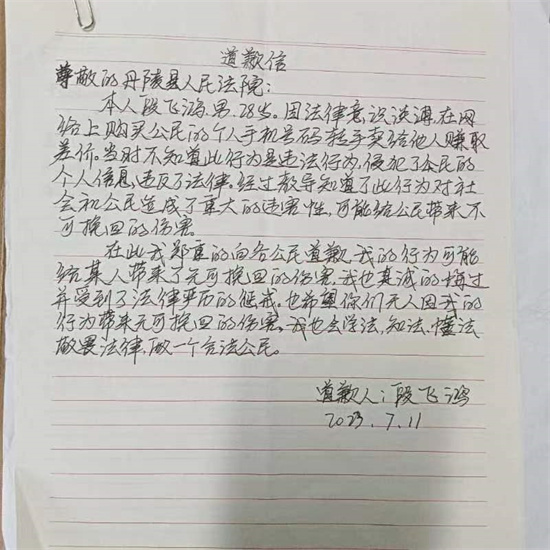 道歉信
尊敬的丹陵县人民法院:
本人段飞鸿,男,28岁。因法律意识淡薄,在网
络上购买公民的个人手机号码转手卖给他人赚取
差价。当时不知道此行为是违法行为,侵犯了公民的
个人信息,违反了法律。经过教导知道了此行为对社
会和公民造成了重大的危害性,可能给公民带来不
可挽回的伤害。
在此我郑重的向各公民道歉,我的行为可能
给某人带来了无可挽回的伤害,我也真诚的悔过
并受到了法律严厉的惩戒。也希望你们无人因我的
行为带来无可挽回的伤害。我也会学法,知法,懂法
敬畏法律,做一个合法公民。
道歉人:段飞鸿
2023.7.11